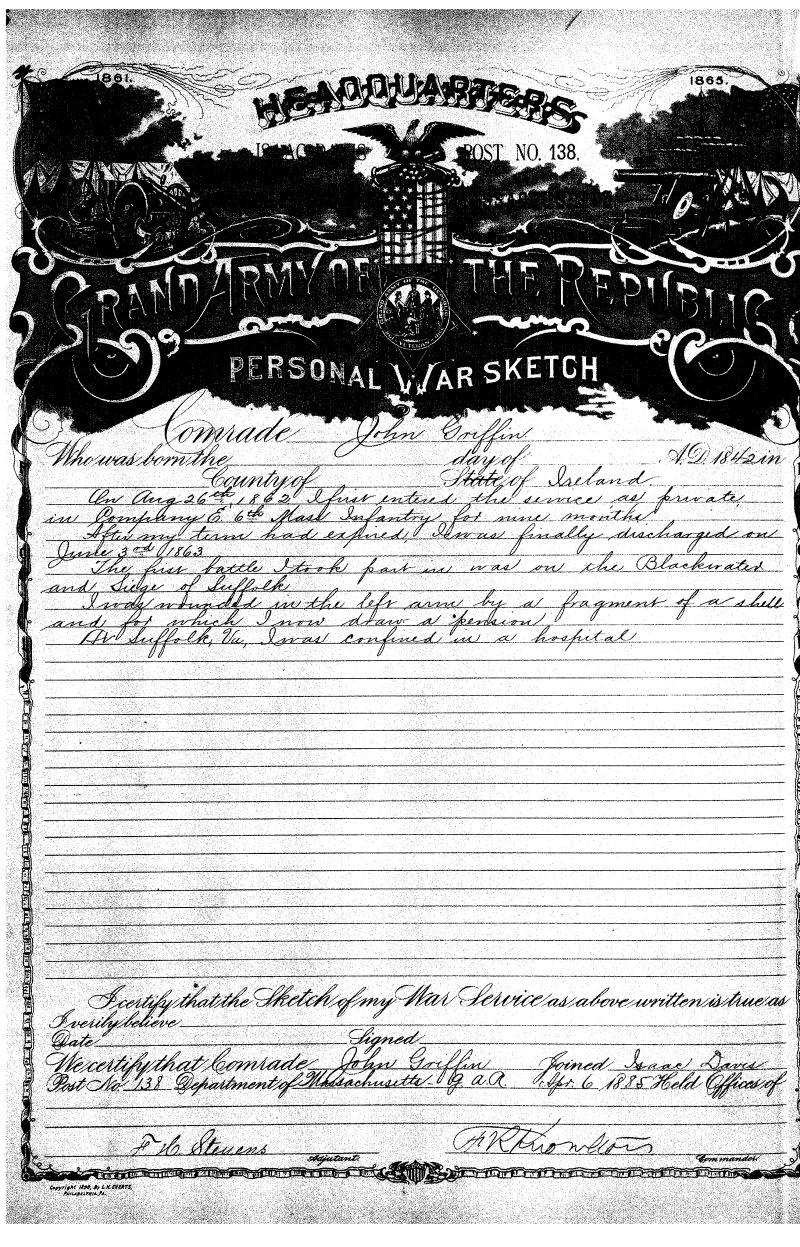 1861.
1865.
HEADQUARTERS
ISAAC DAVIS POST NO. 138.
GRAND ARMY OF THE REPUBLIC
VETERANS
PERSONAL WAR SKETCH
Comrade John Griffin
Who was born the day of A.D. 1842 in
County of State of Ireland
On Aug 26th, 1862 I first entered the service as private
in Company E. 6th Mass Infantry for nine months
After my term had expired I was finally discharged on
June 3rd 1863
The first battle I took part in was on the Blackwater
and Siege of Suffolk
I was wounded in the left arm by a fragment of a shell
and for which I now draw a pension
At Suffolk, Va, I was confined in a hospital
I certify that the Sketch of my War Service as above written is true as
I verily believe
Date Signed
We certify that Comrade John Griffin Joined Isaac Davis
Post No. 138 Department of Massachusetts G.A.R. Apr. 6 1885 Held Offices of
F H Stevens Adjutant. Knowlton Commander.
Copyright 1890, By L.H. EVERTS,
PHILADELPHIA, PA.